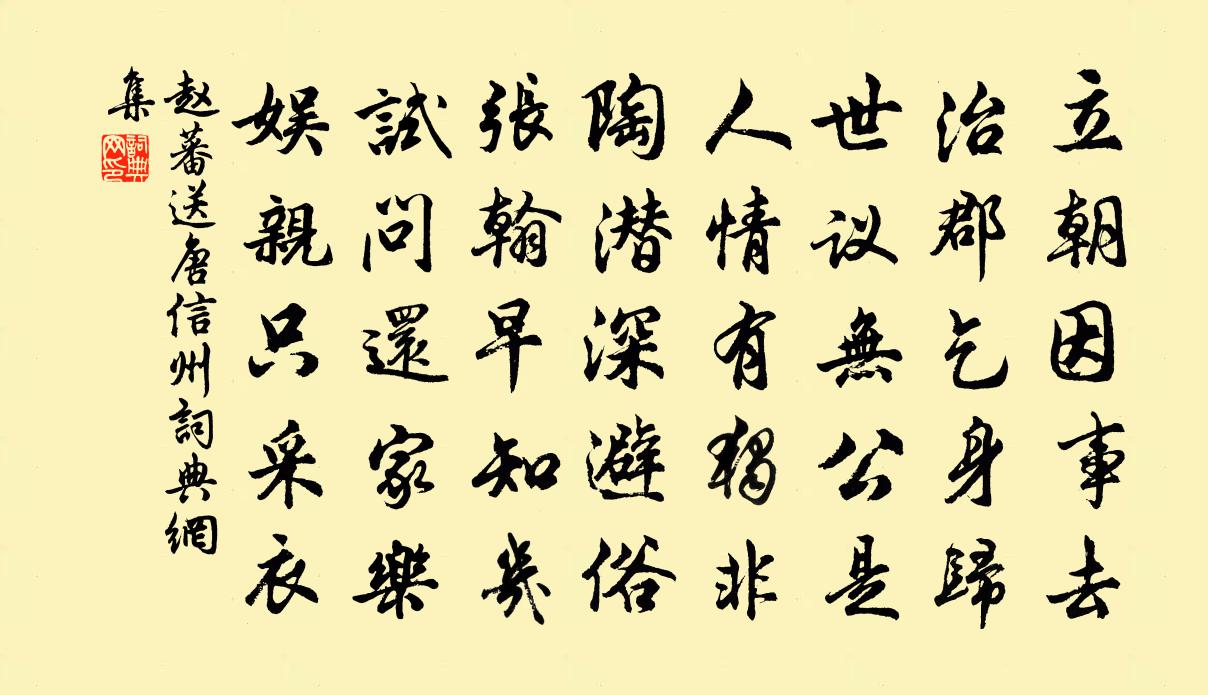 立朝因事去
治郡乞身歸
世议無公是
人情有獨非
陶潜深避俗
張翰早知幾
試問還家樂
娱親只采衣
赵蕃送唐信州詞典網
集
詞典网印